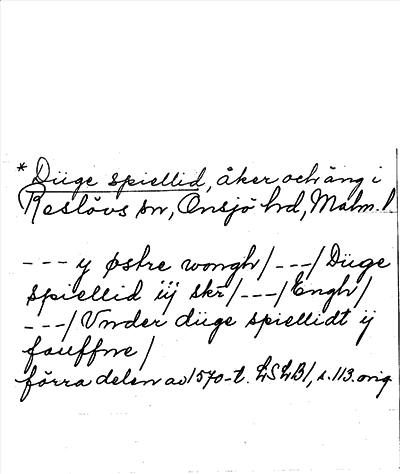 * Düge spiellid, åker och äng i
Reslövs sn, Onsjö hd, Malm. l.
--- y østre wongh/ ---/ Düge
spiellid iij skr/ ---/ Engh/
---/ Vnder düge spiellidt ij
fauffne/
förra delen av 1570-t. LSLB1, s. 113. orig